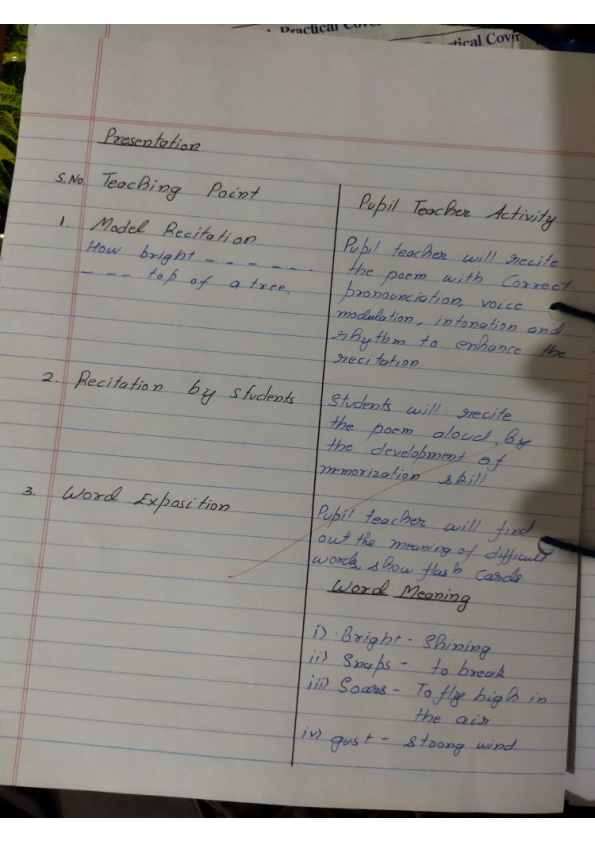 Practical Cover
Practical Cover
Presentation
S.No. Teaching Point
Pupil Teacher Activity
1. Model Recitation
How bright - - - - - -
- - - top of a tree.
Pupil teacher will recite
the poem with Correct
pronounciation, voice
modulation, intonation and
rhythm to enhance the
recitation.
2. Recitation by students
Students will recite
the poem aloud, by
the development of
memorization skill
3. Word Exposition
Pupil teacher will find
out the meaning of difficult
words, show flash Cards
Word Meaning
i) Bright - Shining
ii) Snaps - to break
iii) Soars - To fly high in
the air
iv) gust - stoong wind